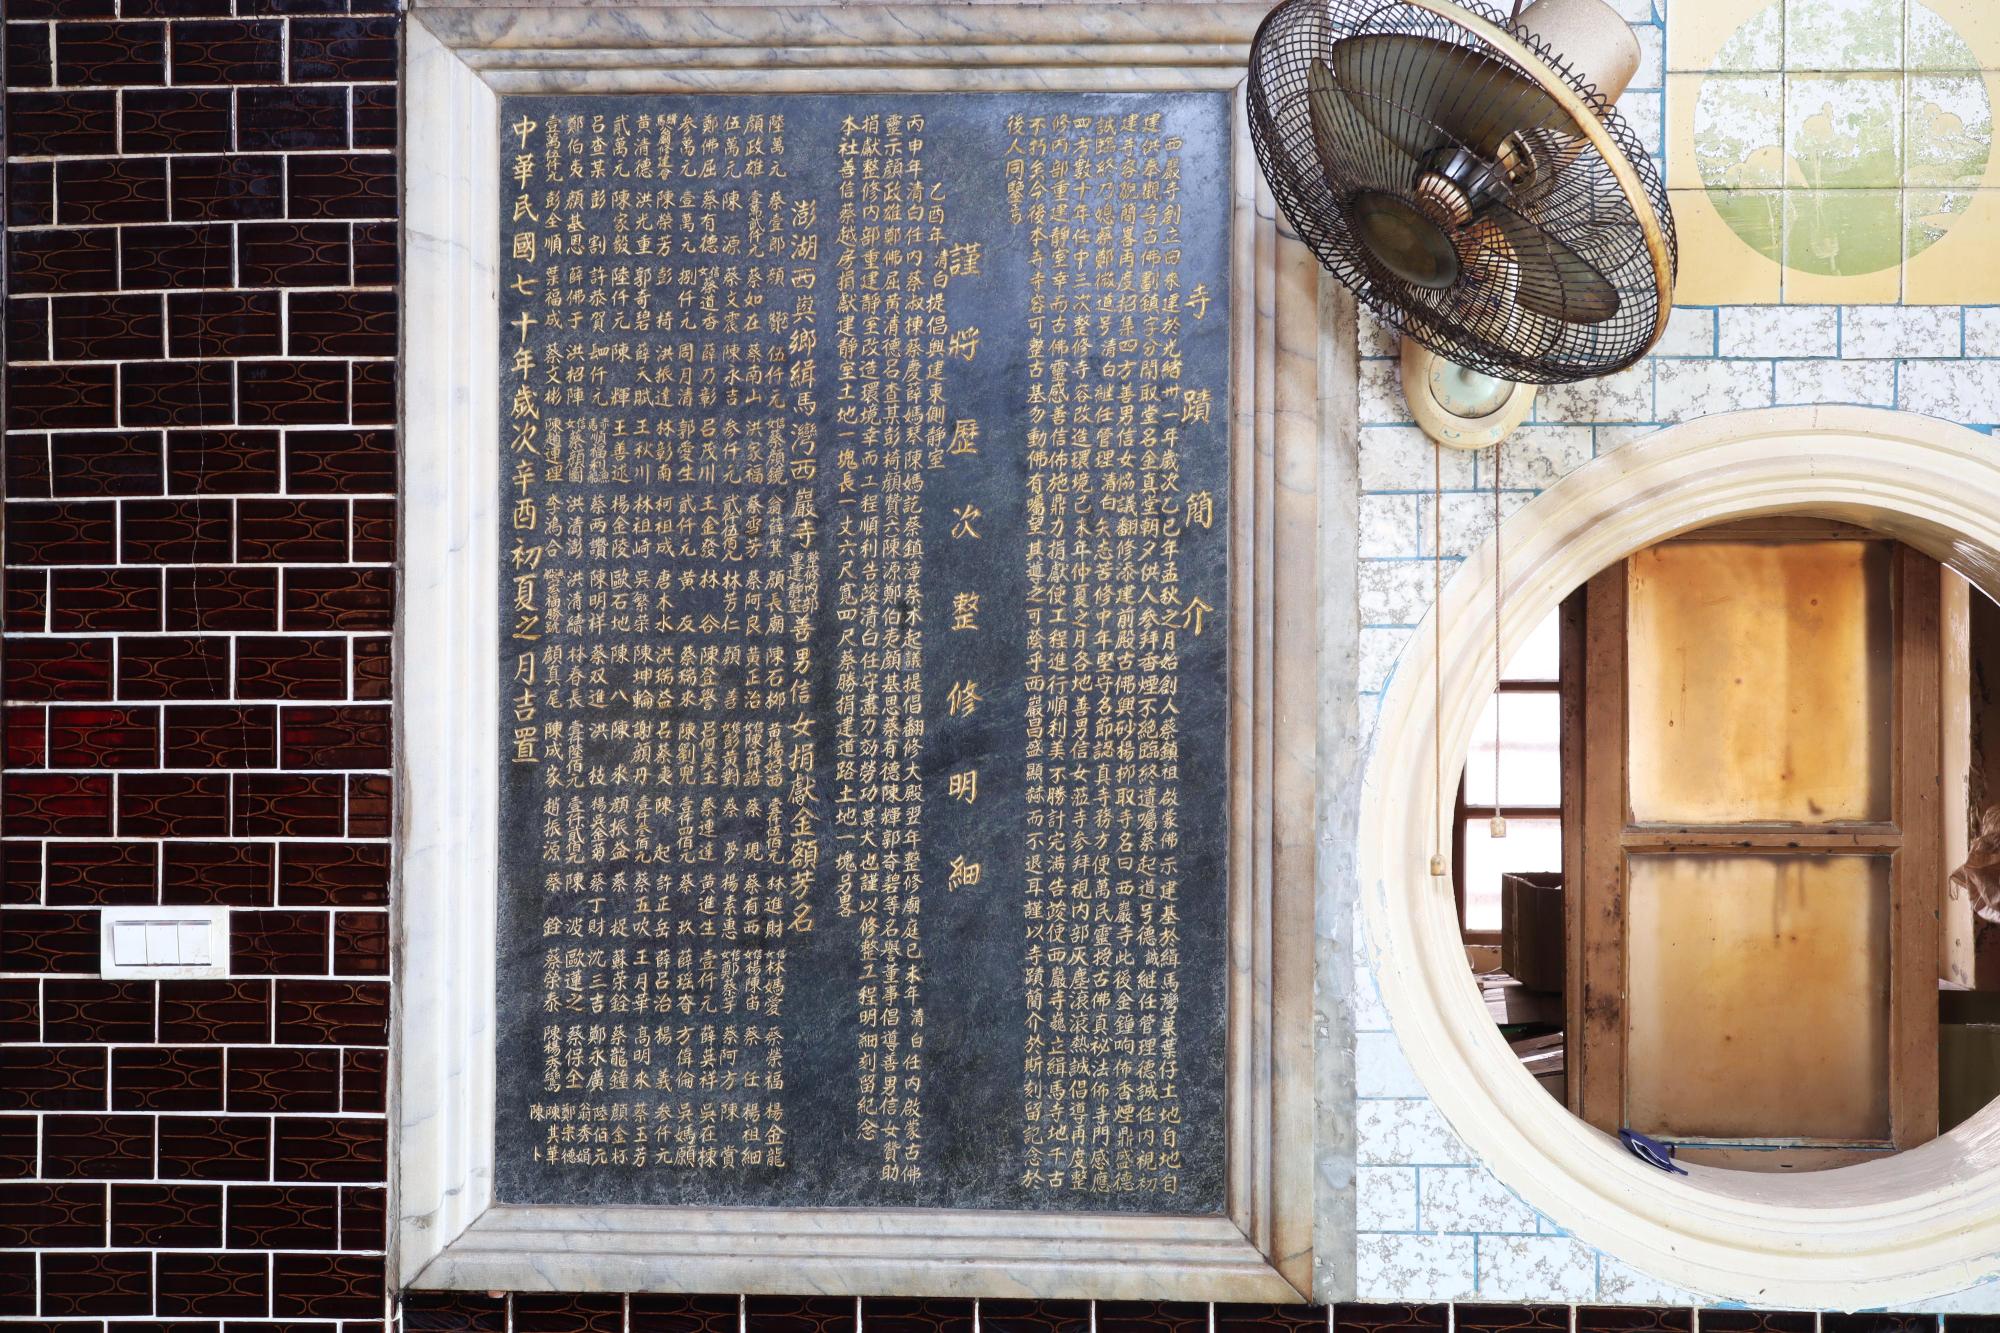 寺蹟簡介
西巖寺創立由來建於光緒卅一年歲次乙巳年孟秋之月始創人蔡鎮祖啟蒙佛示建基於緝馬灣菓葉仔土地自地自
建洪奉觀音古佛劃鎮字分開取堂名金真堂朝夕供人參拜香煙不絕臨終遺囑蔡起道号德誠繼任管理德誠任內視初
建寺容觀簡畧再度招集四方善男信女協議翻修添建前殿古佛興砂楊柳取寺名曰西巖寺此後金鐘响佈香煙鼎盛德
誠臨終乃媳蔡鄭微道号清白繼任管理清白矢志苦修中年堅守名節認真寺務方便萬民靈授古佛真祕法佈寺門感應
四方數十年任中三次整修寺容改造環境己未年仲夏之月各地善男信女蒞寺參拜視內部灰塵滾滾熱誠倡導再度整
修內部重建靜室幸而古佛靈感善信佈施鼎力捐獻使工程進行順利美不勝計完滿告竣使西巖寺巍立緝馬寺地千古
不朽矣今後本寺寺容可整古基勿動佛有囑望其導之可蔭乎西巖昌盛顯赫而不退耳謹以寺蹟簡介於斯刻留記念於
後人同鑒焉
謹將歷次整修明細
乙酉年清白提倡興建東側靜室
丙申年清白任內蔡淑棟蔡慶薛媽蔡陳媽記蔡鎮漳蔡木起議提倡翻修大殿翌年整修廟庭己未年清白任內啟蒙古佛
靈示顏政雄鄭佛屈黃清德呂查某彭掎顏贊陳源鄭伯夷顏基思蔡有德陳輝郭奇碧等名譽董事倡導善男信女贊助
捐獻整修內部重建靜室改造環境幸而工程順利告竣清白任守盡力効勞功莫大也謹以修整工程明細刻留紀念
本社善信蔡越房捐獻建靜室土地一塊長一丈六尺寬四尺蔡勝捐建道路土地一塊另畧
澎湖西與鄉緝馬灣西巖寺整修內部重建靜室善男信女捐獻金額芳名
陸萬元 蔡壹郎 顏 伍仟元 信女蔡顏鏡 翁薛箕 顏長廟 陳石柳 黃楊好西 壹仟伍佰元 林進財 信女林媽愛 蔡榮福 楊金龍
顏政雄 壹萬貳仟元 蔡如在 蔡南山 洪家福 蔡雪芳 蔡阿良 黃正治 信女陳薛誥 蔡現 蔡有西 信女楊陳宙 蔡任 楊祖細
伍萬元 陳源 蔡文震 陳永吉 參仟元 貳仟伍佰元 林芳仁 顏善 信女彭黃對 蔡夢 楊素惠 信女鄭蔡手 蔡阿方 陳賞
鄭佛屈 蔡有德 信女蔡道香 薛乃彰 呂茂川 王金發 林谷 陳登譽 呂何美玉 蔡連達 黃進生 壹仟元 薛英祥 吳在棟
參萬元 壹萬元 捌仟元 周月清 郭愛生 貳仟元 黃友 蔡稿來 陳劉兜 壹仟四佰元 蔡玖 薛瑤奇 方偉倫 吳媽願
陳榮芳 彭掎 洪振達 林彭南 柯祖成 唐木水 洪瑞益 呂蔡夷 陳起 許正岳 薛呂治 楊義 參仟元
黃清德 洪光重 郭奇碧 薛天賦 王秋川 林祖崎 吳繁榮 陳坤輪 謝顏丹 壹仟參佰元 蔡五吹 王月華 高明來 蔡玉芳
貳萬元 陳家毅 陸仟元 陳輝 王善述 楊金陵 歐石地 陳八 陳求 顏振益 蔡捉 蘇榮銓 蔡龍鐘 顏金杯
呂查某 彭割 許恭賀 四仟元 蔡兩讚 陳明祥 蔡双進 洪枝 楊吳金菊 蔡丁財 沈三吉 鄭永廣 陸佰元
鄭伯夷 顏基思 薛佛于 洪招陣 信女蔡顏圖 洪清澎 洪清續 林春長 壹仟陸佰元 壹仟貳佰元 陳波 歐蓮之 蔡保全 翁秀娟
壹萬伍仟元 彭全順 葉福成 蔡文彬 陳趙連理 李鴻合 顏真尾 陳成家 趙振源 蔡銓 蔡榮泰 陳楊秀鸞 鄭宗德
陳其華
陳卜
中華民國七十年歲次辛酉初夏之月吉置